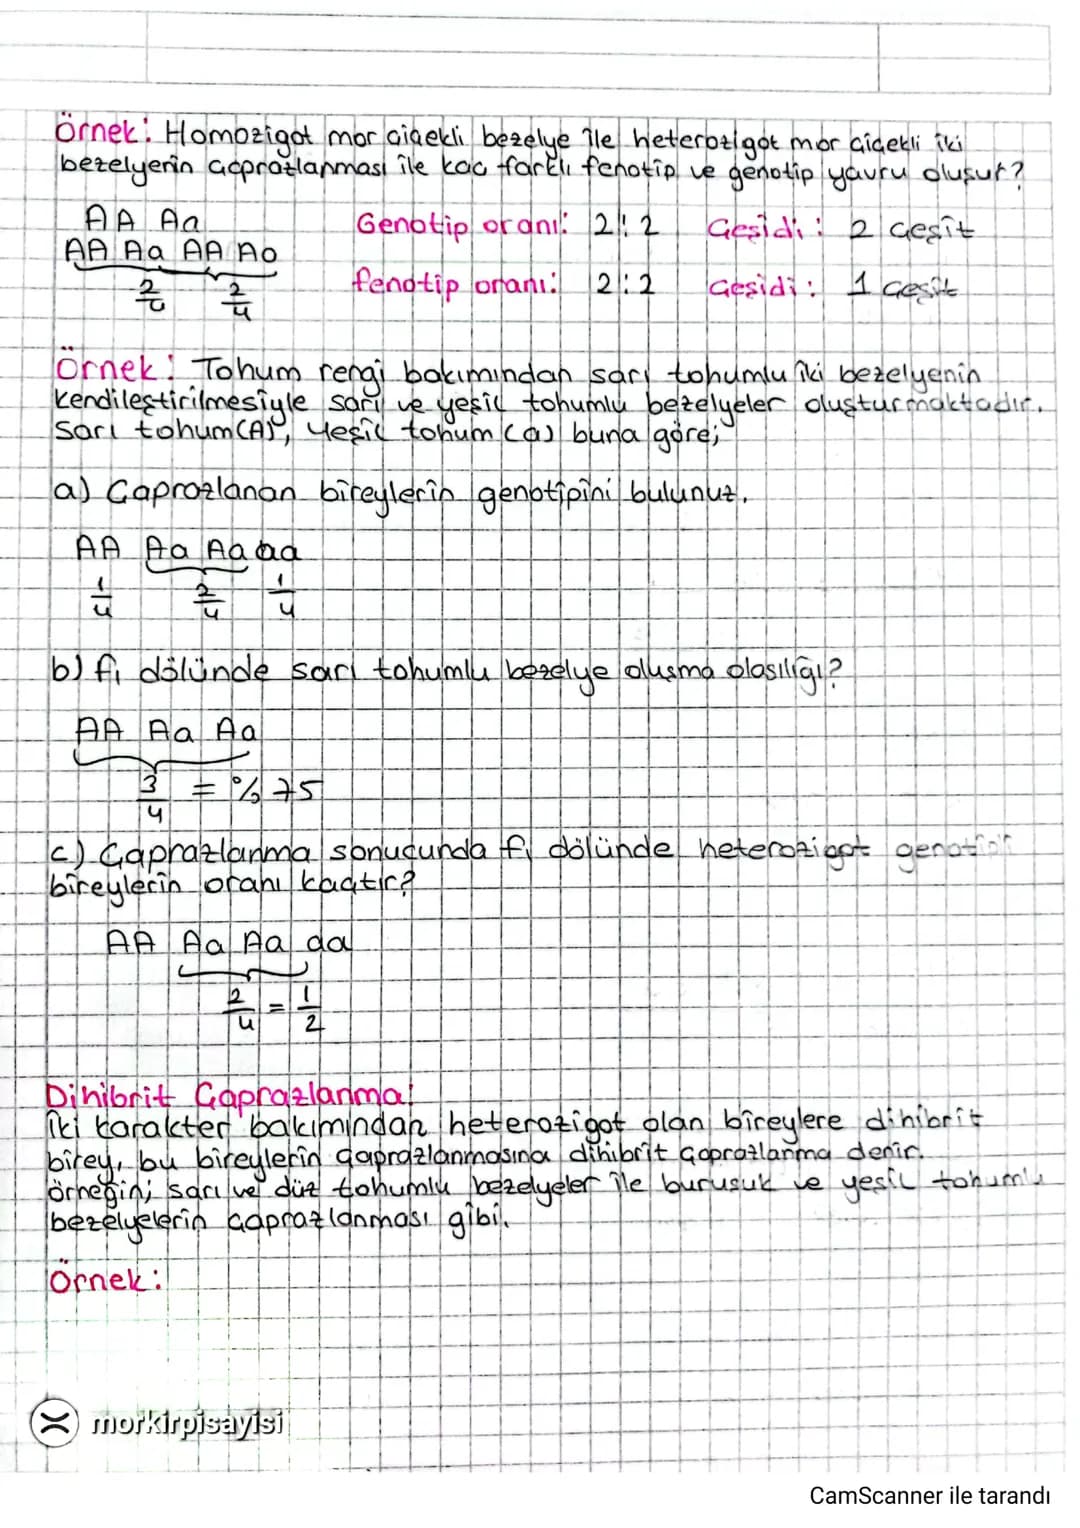 Örnek: Homozigot mor çiçekli bezelye ile heterozigot mor çiçekli iki
bezelyenin çaprazlanması ile kaç farklı fenotip ve genotip yavru oluşur?
AA Aa
AA Aa AA Aa
2/4 2/4
Genotip oranı: 2:2 Çeşidi: 2 çeşit
fenotip oranı: 2:2 Çeşidi: 1 çeşit
Örnek: Tohum rengi bakımından sarı tohumlu iki bezelyenin
kendileştirilmesiyle sarı ve yeşil tohumlu bezelyeler oluşturmaktadır.
Sarı tohum(A), Yeşil tohum(a) buna göre;
a) Çaprazlanan bireylerin genotipini bulunuz.
AA Aa Aa aa
1/4 2/4 1/4
b) f₁ dölünde sarı tohumlu bezelye oluşma olasılığı?
AA Aa Aa
3/4 = %75
c) Çaprazlanma sonucunda f₁ dölünde heterozigot genotipli
bireylerin oranı kaçtır?
AA Aa Aa aa
2/4 = 1/2
Dihibrit Çaprazlanma:
İki karakter bakımından heterozigot olan bireylere dihibrit
birey, bu bireylerin çaprazlanmasına dihibrit çaprazlanma denir.
örneğin; sarı ve düz tohumlu bezelyeler ile buruşuk ve yeşil tohumlu
bezelyelerin çaprazlanması gibi.
Örnek:
morkirpisayisi
CamScanner ile tarandı